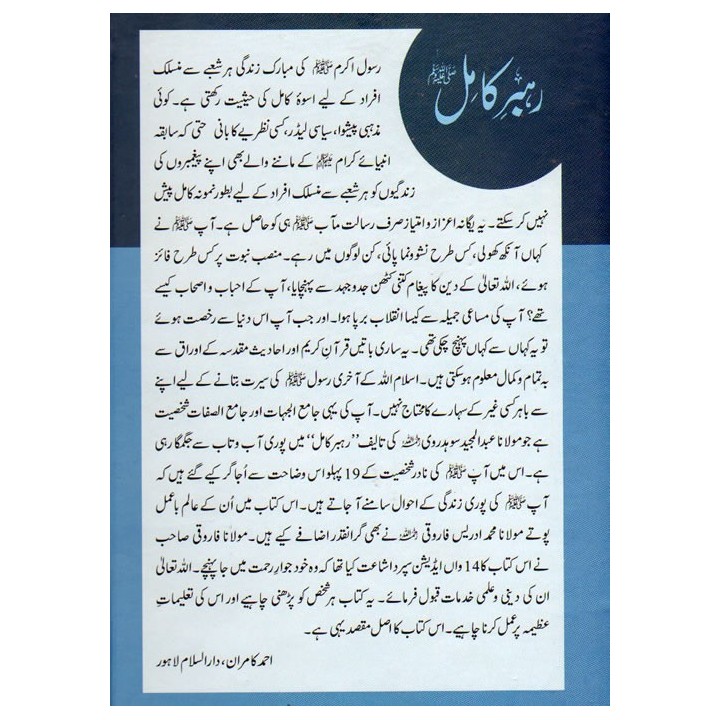 رہبرِ کامل ﷺ
رسول اکرم ﷺ کی مبارک زندگی ہر شعبے سے منسلک
افراد کے لیے اسوۂ کامل کی حیثیت رکھتی ہے۔ کوئی
مذہبی پیشوا، سیاسی لیڈر، کسی نظریے کا بانی حتی کہ سابقہ
انبیائے کرام علیہم السلام کے ماننے والے بھی اپنے پیغمبروں کی
زندگیوں کو ہر شعبے سے منسلک افراد کے لیے بطور نمونہ کامل پیش
نہیں کر سکتے۔ یہ یگانہ اعزاز و امتیاز صرف رسالت مآب ﷺ ہی کو حاصل ہے۔ آپ ﷺ نے
کہاں آنکھ کھولی، کس طرح نشوونما پائی، کن لوگوں میں رہے۔ منصب نبوت پر کس طرح فائز
ہوئے، اللہ تعالیٰ کے دین کا پیغام کتنی کٹھن جدوجہد سے پہنچایا، آپ کے احباب و اصحاب کیسے
تھے؟ آپ کی مساعی جمیلہ سے کیسا انقلاب برپا ہوا۔ اور جب آپ اس دنیا سے رخصت ہوئے
تو یہ کہاں سے کہاں پہنچ چکی تھی۔ یہ ساری باتیں قرآنِ کریم اور احادیث مقدسہ کے اوراق سے
بہ تمام و کمال معلوم ہو سکتی ہیں۔ اسلام اللہ کے آخری رسول ﷺ کی سیرت بتانے کے لیے اپنے
سے باہر کسی غیر کے سہارے کا محتاج نہیں۔ آپ کی یہی جامع الجہات اور جامع الصفات شخصیت
ہے جو مولانا عبدالمجید سوہدروی رحمہ اللہ کی تالیف ’’رہبر کامل‘‘ میں پوری آب و تاب سے جگمگا رہی
ہے۔ اس میں آپ ﷺ کی نادر شخصیت کے 19 پہلو اس وضاحت سے اُجاگر کیے گئے ہیں کہ
آپ ﷺ کی پوری زندگی کے احوال سامنے آ جاتے ہیں۔ اس کتاب میں اُن کے عالم باعمل
پوتے مولانا محمد ادریس فاروقی رحمہ اللہ نے بھی گرانقدر اضافے کیے ہیں۔ مولانا فاروقی صاحب
نے اس کتاب کا 14 واں ایڈیشن سپرد اشاعت کیا تھا کہ وہ خود جوارِ رحمت میں جا پہنچے۔ اللہ تعالیٰ
ان کی دینی و علمی خدمات قبول فرمائے۔ یہ کتاب ہر شخص کو پڑھنی چاہیے اور اس کی تعلیمات
عظیمہ پر عمل کرنا چاہیے۔ اس کتاب کا اصل مقصد یہی ہے۔
احمد کامران، دارالسلام لاہور